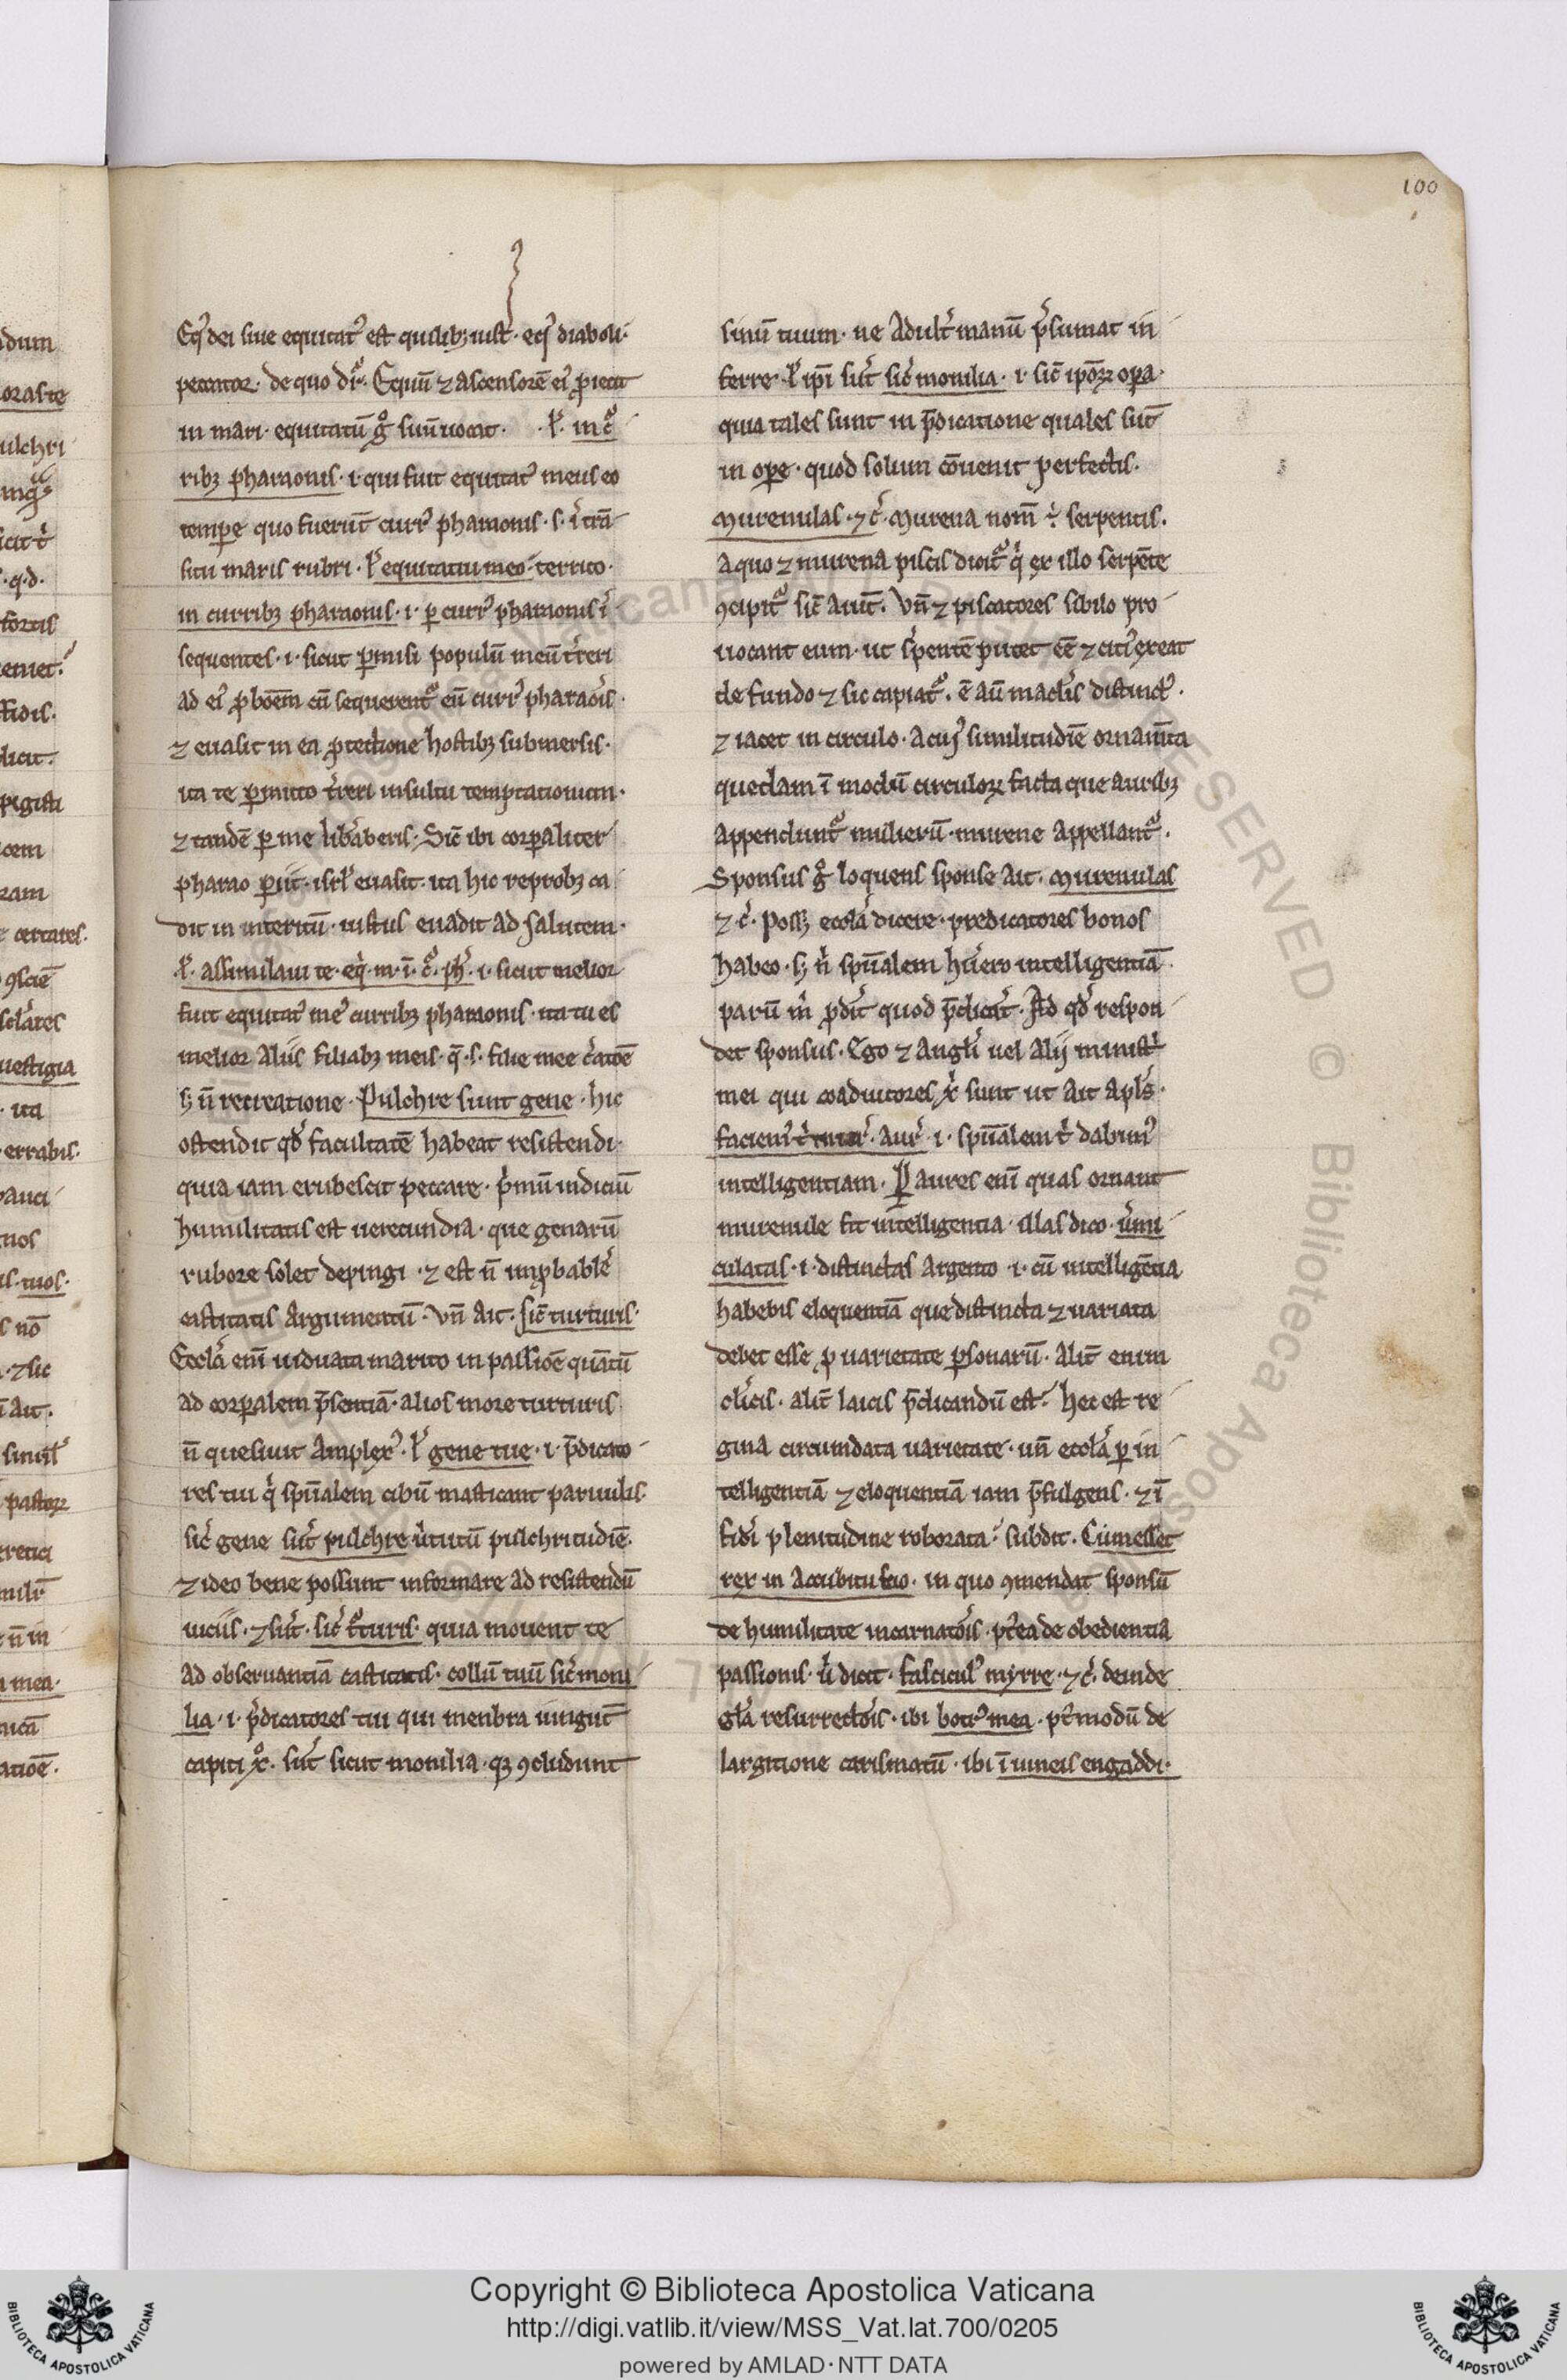 100
Eq᷒ dei siue equitat᷒ est quilibꝫ iust᷒· eq᷒ diaboli·
peccator· de quo dr̄· Equū ⁊ ascensorē ei᷒ ꝓiecit
in mari· equitatū gͦ suū uocat· ł· in cͦ
ribꝫ pharaonis· i· qui fuit equitat᷒ meus eo
tempe quo fuerūt curr᷒ pharaonis· s· ī trā
situ maris rubri· ł equitatui meo territo·
in curribꝫ pharaonis· i· ꝑ curr᷒ pharaonis
sequentes· i· sicut ꝑmisi populū meū t̄reri
ad ei᷒ ꝓboēm cū sequerent᷒ eū curr᷒ pharaōis·
⁊ euasit in ea ꝓtectione hostibꝫ submersis·
ita te ꝑmitto t̄reri insultu temptationum·
⁊ tandē ꝑ me libaberis· Sic̄ ibi corꝑaliter
pharao ꝑiit· isrł euasit· ita hic reprobꝫ ca
dit in interitū· iustus euadit ad salutem·
ł· assimilaui te· eq̄· m· ī· c̄· ph̄· i· sicut melior
fuit equitat᷒ me᷒ curribꝫ pharaonis· ita tu es
melior aliis filiabꝫ meis· q̄· s· filie mee c̄atōe
sꝫ n̄ recreatione· Pulchre sunt gene· hic
ostendit qđ facultatē habeat resistendi·
quia iam erubescit peccare· p̄mū indiciū
humilitatis est uerecundia· que genarū
rubore solet depingi· ⁊ est n̄ imꝓbabile
castitatis argumentū· Vn̄ ait· sic̄ turturis·
Eccła eni᷒ uiduata marito in passiōe quātū
ad corꝑalem p̄sentiā· alios more turturis
n̄ quesiuit amplex᷒· ł gene tue· i· p̄dicato
res tui q̄ spūalem cibū masticant paruulis·
sic̄ gene sūt pulchre uirtutū pulchritudiē·
⁊ ideo bene possunt informare ad resistendū
uiciis· ⁊ sūt· sic̄ t̄turis· quia mouent te
ad obseruantiā castitatis· collū tuū sic̄ moni
lia· i· p̄dicatores tui qui menbra iungūt
capiti xͦ· sūt sicut monilia· qꝫ ꝯcludunt
sinū tuum· ne adult̄ manū p̄sumat in
ferre· ł ip̄i sūt sic̄ monilia· i· sic̄ ipōꝝ opa·
quia tales sunt in p̄dicatione quales sūt
in ope· quod solum cōuenit perfectis·
Murenulas· ⁊c̄· Murena nom̄ ē serpentis·
a quo ⁊ murena piscis dicit᷒ q̄ ex illo serpēte
ꝯcipit᷒ sic̄ aiūt· Vn̄ ⁊ piscatores sibilo pro
uocant eum· ut s̄pentē putet eē ⁊ citi᷒ exeat
de fundo ⁊ sic capiat᷒· ē aū maclis distinct᷒·
⁊ iacet in circulo· a cui᷒ similitudiē ornam̄ta
quedam ī modū circuloꝝ facta que auribꝫ
appendunt᷒ mulierū· murene appellant᷒·
Sponsus gͦ loquens sponse ait· murenulas
⁊c̄· Possꝫ eccła dicere· predicatores bonos
habeo· sꝫ n̄ spūalem hūero intelligentiā·
parū m̄ ꝓdit quod p̄dicat᷒· Ad qđ respon
det sponsus· Ego ⁊ angłi uel alij ministi
mei qui coadiutores xͥ sunt ut ait apłs·
faciem᷒ t̄ mur᷒· aur᷒· i· spūalem t̄ dabim᷒
intelligentiam· Per aures eni᷒ quas ornant
murenule fit intelligentia· illas dico· u̇mi
culatas· i· distinctas argento· i· cū intelligētia
habebis eloquentiā que distincta ⁊ uariata
debet esse ꝓ uarietate ꝑsonarū· Alit̄ enim
cl̄icis· alit̄ laicis p̄dicandū est· hec est re
gina circumdata uarietate· un̄ eccła ꝑ in
telligentiā ⁊ eloquentiā iam p̄fulgens· ⁊ ī
fidei plenitudine roborata· subdit· Cū esset
rex in accubitu suo· in quo ꝯmendat sponsū
de humilitate incarnatōis· pt̄ea de obedientia
passionis· u̇ dicit· fascicul᷒ myrre· ⁊c̄· deinde
gła resurrectōis· ibi botr᷒ mea· pt̄modū de
largitione carismatū· ibi ī uineis engaddi·
Copyright © Biblioteca Apostolica Vaticana
http://digi.vatlib.it/view/MSS_Vat.lat.700/0205
powered by AMLAD·NTT DATA
BIBLIOTECA APOSTOLICA VATICANA
BIBLIOTECA APOSTOLICA VATICANA